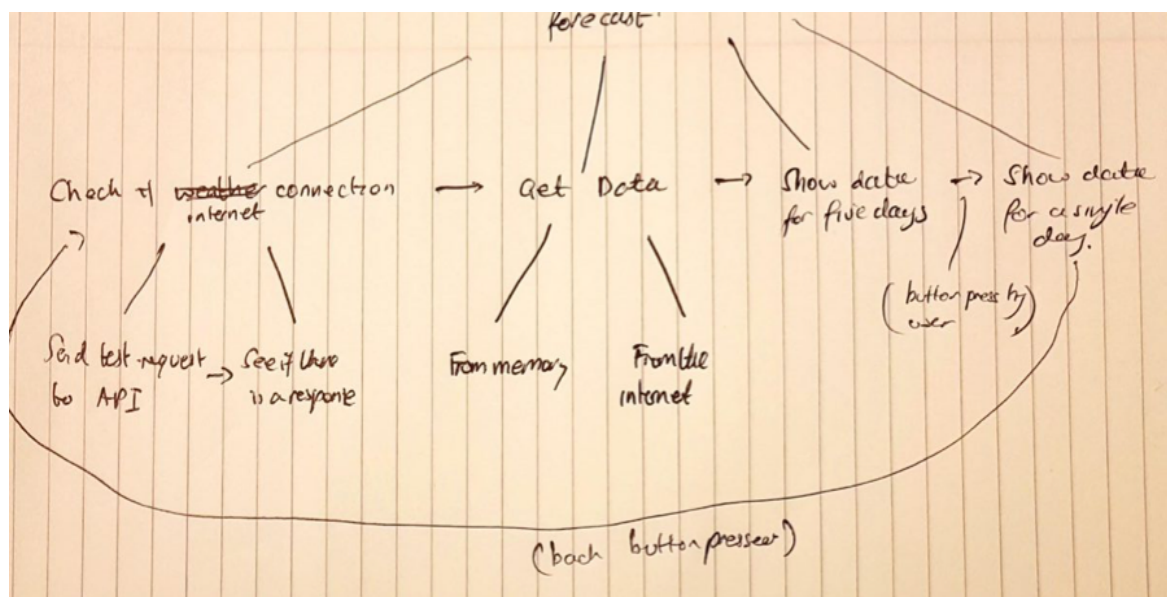 forecast.
Check if weather connection
internet
Get Data
Show data
for five days
Show data
for a single
day.
(button press by
user)
Send test request
to API
See if there
is a response
From memory
From the
internet
(back button pressed)